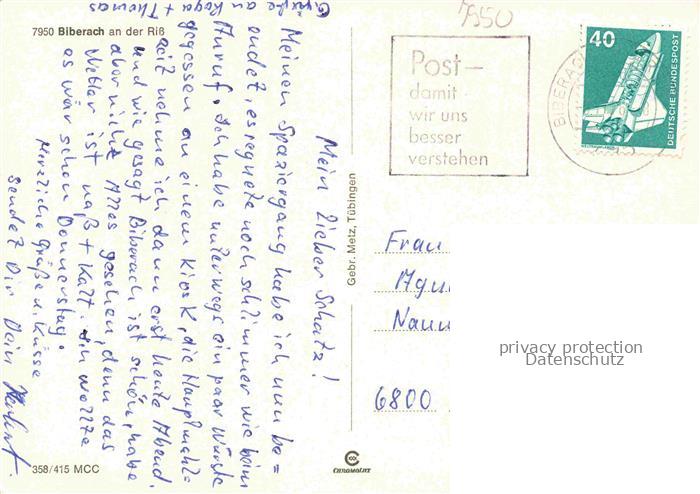 7950 Biberach an der Riß
Mein lieber Schatz!
Meinen Spaziergang habe ich nun be=
endet, es regnete noch schlimmer wie beim
Anruf. Ich habe unterwegs ein paar Würste
gegessen an einem Kiosk, die Hauptmahl=
zeit nehme ich dann erst heute Abend.
und wie gesagt Biberach ist schön, habe
aber nicht Alles gesehen, denn das
Wetter ist naß + Kalt. Ich wollte
es wär schon Donnerstag.
Herzliche Grüße u. Küsse
sendet Dir Dein
Grüße
an + Thomas
358/415 MCC
Gebr. Metz, Tübingen
CHROMOLUX
7950
Post –
damit
wir uns
besser
verstehen
BIBERACH
40
DEUTSCHE BUNDESPOST
Frau
6800
privacy protection
Datenschutz